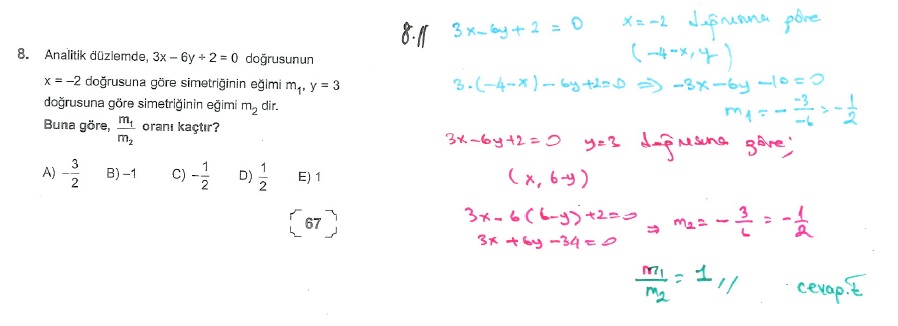 8. Analitik düzlemde, 3x – 6y + 2 = 0 doğrusunun
x = –2 doğrusuna göre simetriğinin eğimi m₁, y = 3
doğrusuna göre simetriğinin eğimi m₂ dir.
Buna göre, m₁/m₂ oranı kaçtır?
A) –3/2 B) –1 C) –1/2 D) 1/2 E) 1
67
8.//
3x-6y+2=0 x=-2 doğrusuna göre
(-4-x, y)
3.(-4-x)-6y+2=0 ⇒ -3x-6y-10=0
m₁ = - -3/-6 = -1/2
3x-6y+2=0 y=3 doğrusuna göre;
(x, 6-y)
3x-6(6-y)+2=0 ⇒ m₂ = -3/6 = -1/2
3x+6y-34=0
m₁/m₂ = 1 //
cevap.E